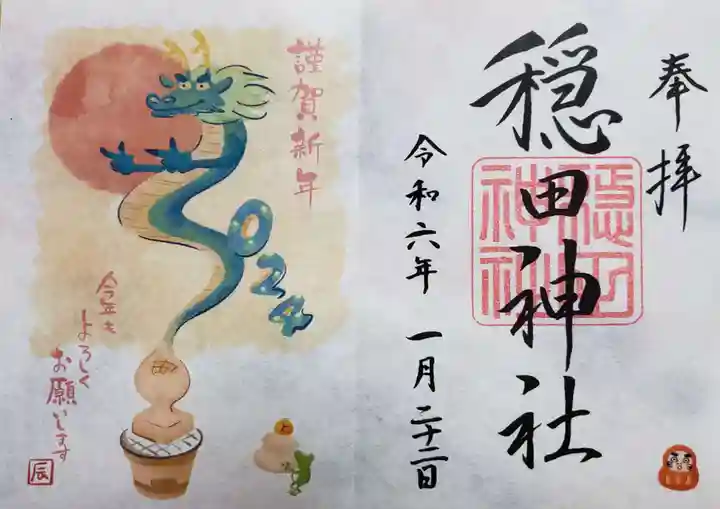 奉拝
穏田神社
穏田神社
令和六年 一月二十二日
謹賀新年
2024
今年も
よろしく
お願いします
辰